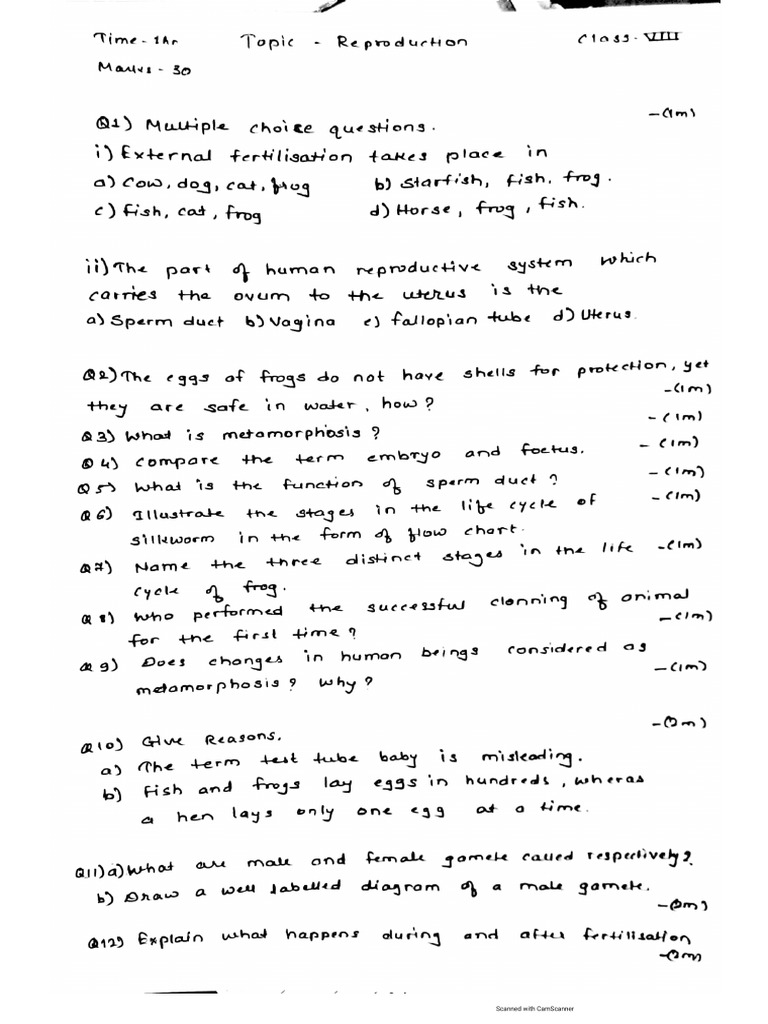 Time - 1hr Topic - Reproduction Class - VIII
Marks - 30
Q1) Multiple choice questions. -(1m)
i) External fertilisation takes place in
a) Cow, dog, cat, frog b) Starfish, fish, frog.
c) fish, cat, frog d) Horse, frog, fish.
ii) The part of human reproductive system which
carries the ovum to the uterus is the
a) Sperm duct b) Vagina c) fallopian tube d) Uterus.
Q2) The eggs of frogs do not have shells for protection, yet
they are safe in water, how? -(1m)
Q3) What is metamorphosis? -(1m)
Q4) Compare the term embryo and foetus. -(1m)
Q5) What is the function of sperm duct? -(1m)
Q6) Illustrate the stages in the life cycle of -(1m)
silkworm in the form of flow chart.
Q7) Name the three distinct stages in the life -(1m)
cycle of frog.
Q8) Who performed the successful clonning of animal
for the first time? -(1m)
Q9) Does changes in human beings considered as
metamorphosis? Why? -(1m)
Q10) Give Reasons. -(2m)
a) The term test tube baby is misleading.
b) Fish and frogs lay eggs in hundreds, wheras
a hen lays only one egg at a time.
Q11) a) What are male and female gamete called respectively?
b) Draw a well labelled diagram of a male gamete.
-(2m)
Q12) Explain what happens during and after fertilisation
-(2m)
Scanned with CamScanner